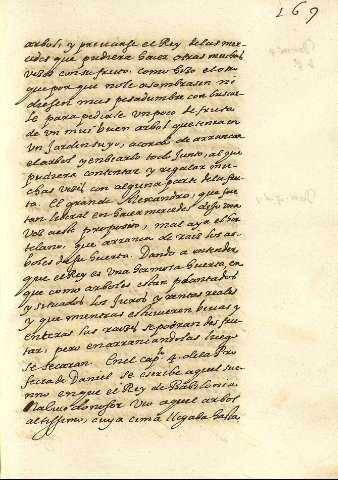 169
arbol, y privarse el Rey de las mer-
cedes que pudiera hacer otras muchas
vezes con su fruto. Como hizo el otro
que por que no le asombrasen ni
diesen mas pesadumbre con buscar
le para pedirle un poco de fruta
de vn muy buen arbol que tenia en
vn Jardin suyo, acordo de arrancar
el arbol y enbiarlo todo junto, al que
pudiera contentar y regalar mu-
chas vezes con alguna parte de la fru-
ta. El grande Alexandro, que fue
tan liberal en hacer mercedes dijo vna
vez a este proposito, mal aya el hor-
telano, que arranca de raiz los ar-
boles de su huerta. Dando a entender
que el Rey es vna hermosa huerta, en
que como arboles estan plantados
y situados los Juros y rentas reales
y que mientras estuvieren vivas y
enteras las raizes se podran disfru-
tar, pero en arrancandolas luego
se secaran. En el cap.º 4. de la Pro
fecia de Daniel se escribe aquel sue-
nno en que el Rey de Babilonia
Nabucodonosor vio aquel arbol
altissimo, cuya cima llegaba hasta